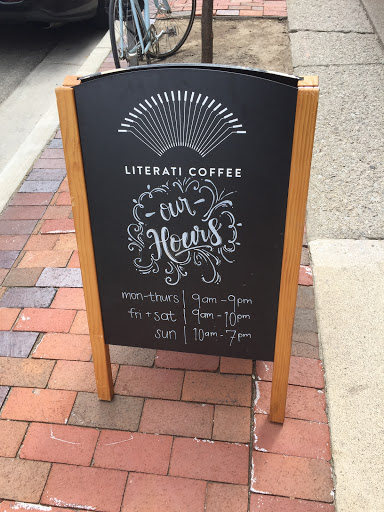 LITERATI COFFEE
-our-
Hours
mon-thurs | 9am-9pm
fri + sat | 9am-10pm
sun | 10am-7pm